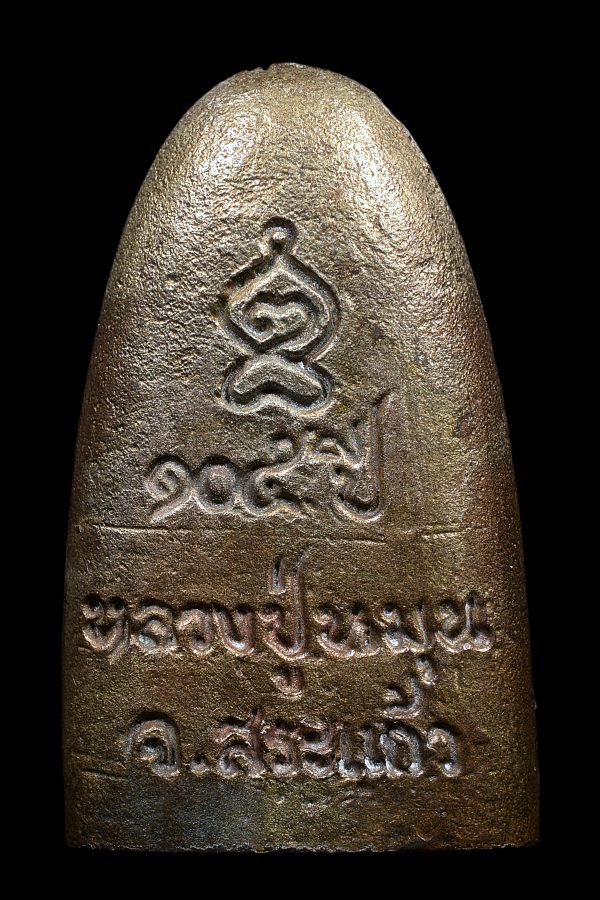 ๑๐๕ ปี
หลวงปู่หมุน
จ.สระแก้ว